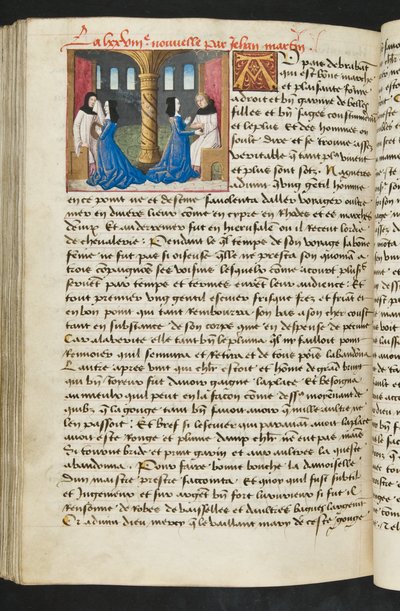 La lxxviij.e nouvelle par Jehan martin
Au pais de brabāt
qui est bōne marche
et plaisante fōrnie
adroit et biē garnie de belles
filles et biē sages coustumieremēt
et le plus Et des hommes on
soult dire et se trouve assez
veritable q̄ tant plꝰ vivent
et plus sont sotz. Nagueres
advint q̄ ung gentil homme
en ce point ne et destine savolenta daller voyager oultre
mer en divers lieux cōme en cypre en Rhodes et es marches
denvirō Et au derrenier fut en Jherusalem ou il receut lordre
de chevalerie. Pendant le q̄l temps de son voyage sa bōne
fēme ne fut pas si oiseuse q̄lle ne presta son quoniā a
trois compaignōs ses voisins lesquelx cōme a court plusrs
servent par temps et termes eurent leur audience. Et
tout premier ung gentil escuier frisque frez et friant et
en bon point qui tant rembourra son bas a son cher coust
tant en substance de son corps que en despense de pecune
Car a la verite elle tant biē le pluma q̄l ny failloit point
renvoier quil sennuya et Retira et de tous poīs labandōna
Laultre apres vint qui chlr̄ estoit et hōme de grand bruit
qui biē Joyeux fut davoir gaigne la place Et besoigna
au mieulx quil peut en la facon cōme dessꝰ moyenant de
quibꝰ q̄ la gouge tant biē savoit avoir q̄ nulle aultre ne
len passoit. Et bref si lescuier qui paravant avoit la place
avoit este Ronge et plume damp chlr̄ nē eut pas mains
Si tourna bride et print garin et aux aultres la queste
abandōna. Pour faire bonne bouche la damoiselle
dun maistre prestre saccointa Et quoy quil fust subtil
et Ingenieux et sur argent biē fort luxurieux si fut il
Rensonne de robes de vaisselles et daultres bagues largemēt
Or advint dieu mercy q̄ le vaillant mary de ceste gouge